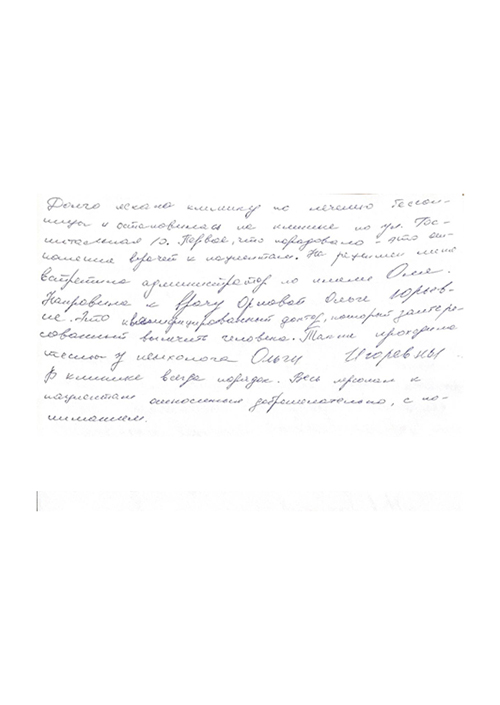 Долго искала клинику по лечению бессон-
ницы и остановилась на клинике по ул. Гос-
питальная 10. Первое, что порадовало - это от-
ношение врачей к пациентам. На ресепшен меня
встретила администратор по имени Оля.
Направила к врачу Орловой Ольге Юрьев-
не. Это квалифицированный доктор, который заинтере-
сованный вылечить человека. Также проходила
тесты у психолога Ольги Игоревны.
В клинике всегда порядок. Весь персонал к
пациентам относится доброжелательно, с по-
ниманием.